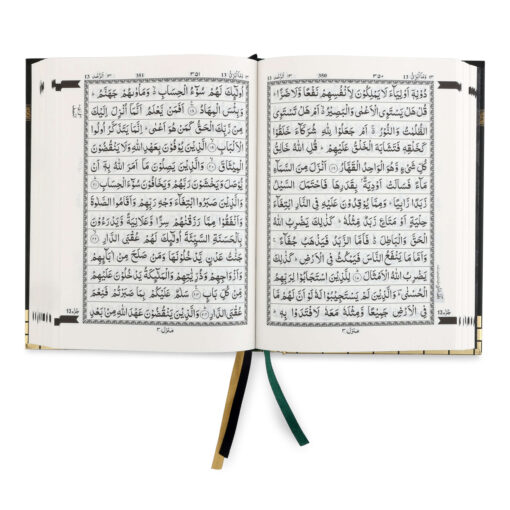 دُوْنِهٖٓ اَوْلِيَآءَ لَا يَمْلِكُوْنَ لِاَنْفُسِهِمْ نَفْعًا وَّلَا ضَرًّا ؕ
قُلْ هَلْ يَسْتَوِى الْاَعْمٰى وَالْبَصِيْرُ ۙ اَمْ هَلْ تَسْتَوِى
الظُّلُمٰتُ وَالنُّوْرُ ۚ اَمْ جَعَلُوْا لِلّٰهِ شُرَكَآءَ خَلَقُوْا
كَخَلْقِهٖ فَتَشَابَهَ الْخَلْقُ عَلَيْهِمْ ؕ قُلِ اللّٰهُ خَالِقُ
كُلِّ شَىْءٍ وَّهُوَ الْوَاحِدُ الْقَهَّارُ ﴿۱۶﴾ اَنْزَلَ مِنَ السَّمَآءِ
مَآءً فَسَالَتْ اَوْدِيَةٌۢ بِقَدَرِهَا فَاحْتَمَلَ السَّيْلُ
زَبَدًا رَّابِيًا ؕ وَمِمَّا يُوْقِدُوْنَ عَلَيْهِ فِى النَّارِ ابْتِغَآءَ
حِلْيَةٍ اَوْ مَتَاعٍ زَبَدٌ مِّثْلُهٗ ؕ كَذٰلِكَ يَضْرِبُ اللّٰهُ
الْحَقَّ وَالْبَاطِلَ ؕ فَاَمَّا الزَّبَدُ فَيَذْهَبُ جُفَآءً ۚ
وَاَمَّا مَا يَنْفَعُ النَّاسَ فَيَمْكُثُ فِى الْاَرْضِ ؕ كَذٰلِكَ
يَضْرِبُ اللّٰهُ الْاَمْثَالَ ﴿۱۷﴾ لِلَّذِيْنَ اسْتَجَابُوْا لِرَبِّهِمُ
الْحُسْنٰى ؔؕ وَالَّذِيْنَ لَمْ يَسْتَجِيْبُوْا لَهٗ لَوْ اَنَّ لَهُمْ مَّا
فِى الْاَرْضِ جَمِيْعًا وَّمِثْلَهٗ مَعَهٗ لَافْتَدَوْا بِهٖ ؕ
منزل ۳
اُولٰٓئِكَ لَهُمْ سُوْٓءُ الْحِسَابِ ۙ وَمَاْوٰىهُمْ جَهَنَّمُ ؕ
وَبِئْسَ الْمِهَادُ ﴿۱۸﴾ اَفَمَنْ يَّعْلَمُ اَنَّمَآ اُنْزِلَ اِلَيْكَ
مِنْ رَّبِّكَ الْحَقُّ كَمَنْ هُوَ اَعْمٰى ؕ اِنَّمَا يَتَذَكَّرُ اُولُوا
الْاَلْبَابِ ﴿۱۹﴾ الَّذِيْنَ يُوْفُوْنَ بِعَهْدِ اللّٰهِ وَلَا يَنْقُضُوْنَ
الْمِيْثَاقَ ﴿۲۰﴾ وَالَّذِيْنَ يَصِلُوْنَ مَآ اَمَرَ اللّٰهُ بِهٖٓ اَنْ
يُّوْصَلَ وَيَخْشَوْنَ رَبَّهُمْ وَيَخَافُوْنَ سُوْٓءَ الْحِسَابِ ﴿۲۱﴾
وَالَّذِيْنَ صَبَرُوا ابْتِغَآءَ وَجْهِ رَبِّهِمْ وَاَقَامُوا الصَّلٰوةَ
وَاَنْفَقُوْا مِمَّا رَزَقْنٰهُمْ سِرًّا وَّعَلَانِيَةً وَّيَدْرَءُوْنَ
بِالْحَسَنَةِ السَّيِّئَةَ اُولٰٓئِكَ لَهُمْ عُقْبَى الدَّارِ ﴿۲۲﴾
جَنّٰتُ عَدْنٍ يَّدْخُلُوْنَهَا وَمَنْ صَلَحَ مِنْ اٰبَآئِهِمْ
وَاَزْوَاجِهِمْ وَذُرِّيّٰتِهِمْ وَالْمَلٰٓئِكَةُ يَدْخُلُوْنَ عَلَيْهِمْ
مِّنْ كُلِّ بَابٍ ﴿۲۳﴾ سَلٰمٌ عَلَيْكُمْ بِمَا صَبَرْتُمْ فَنِعْمَ
عُقْبَى الدَّارِ ﴿۲۴﴾ وَالَّذِيْنَ يَنْقُضُوْنَ عَهْدَ اللّٰهِ مِنْۢ بَعْدِ
منزل ۳